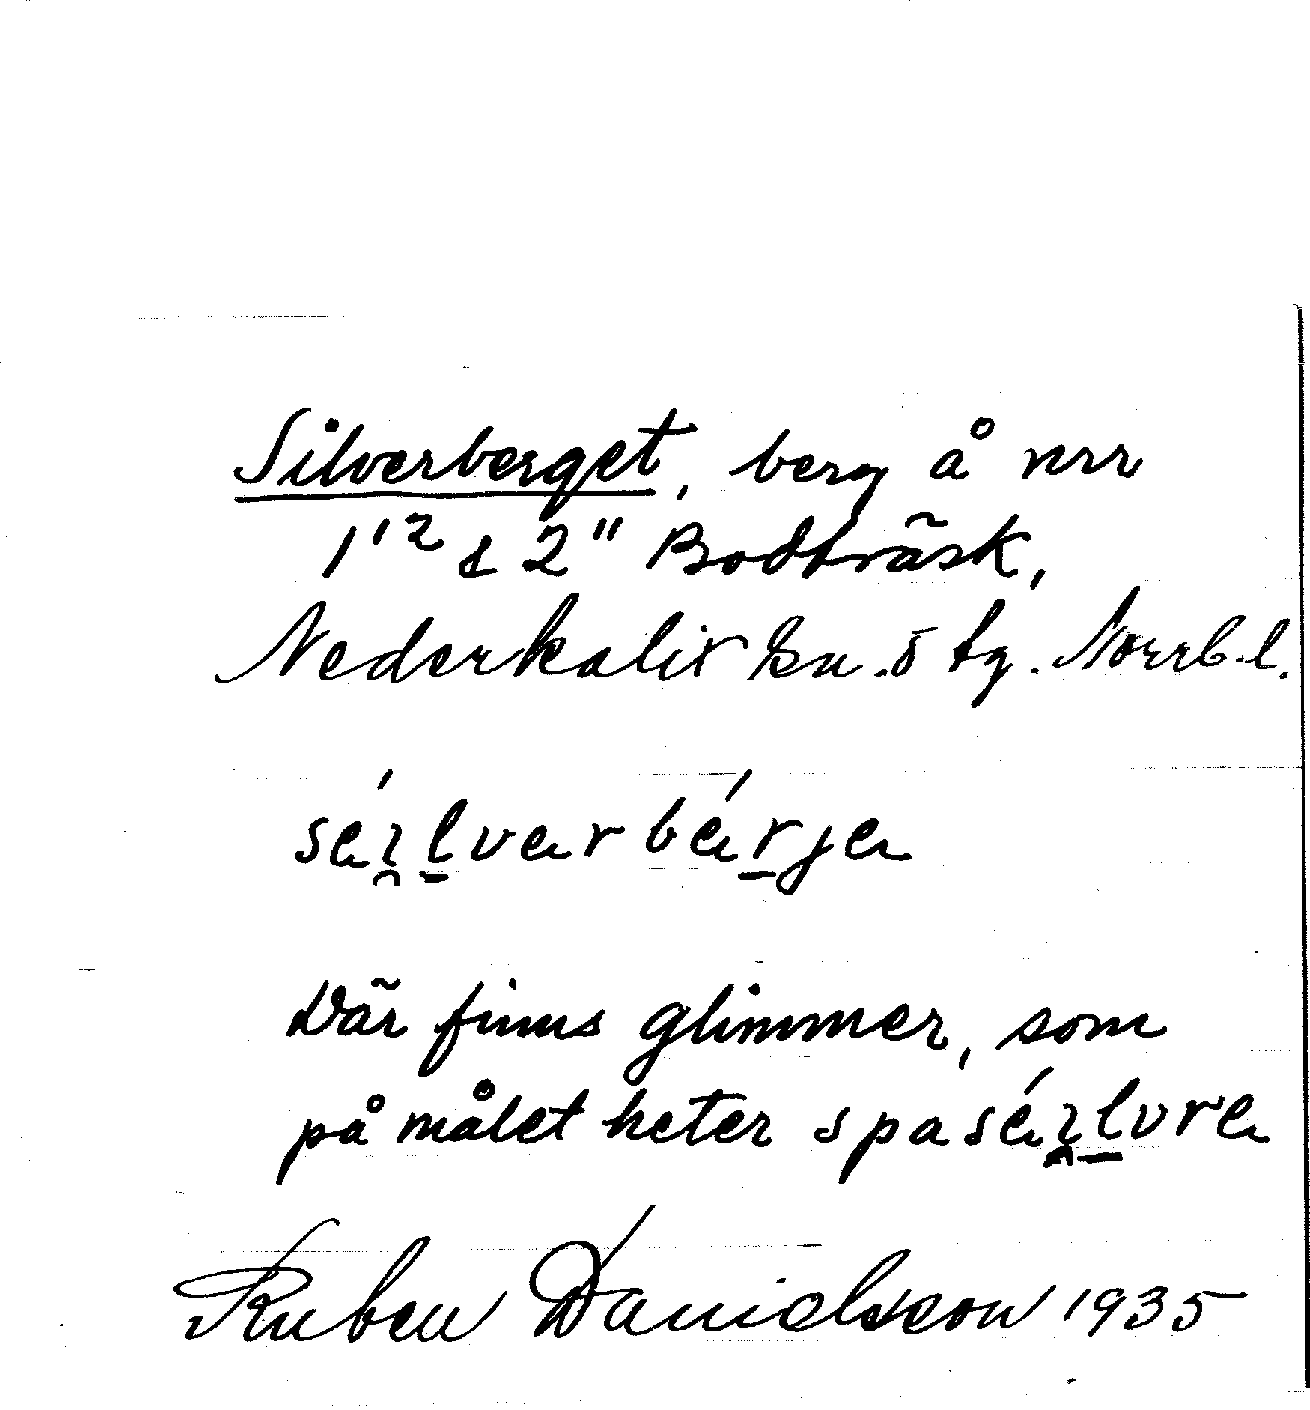 Silverberget, berg å nrr
1'² & 2" Bodträsk,
Nederkalix sn. o tg. Norrb.l.
séɪlvervar bérje
Där finns glimmer, som
på målet heter spaséɪlvre
Ruben Danielsson 1935